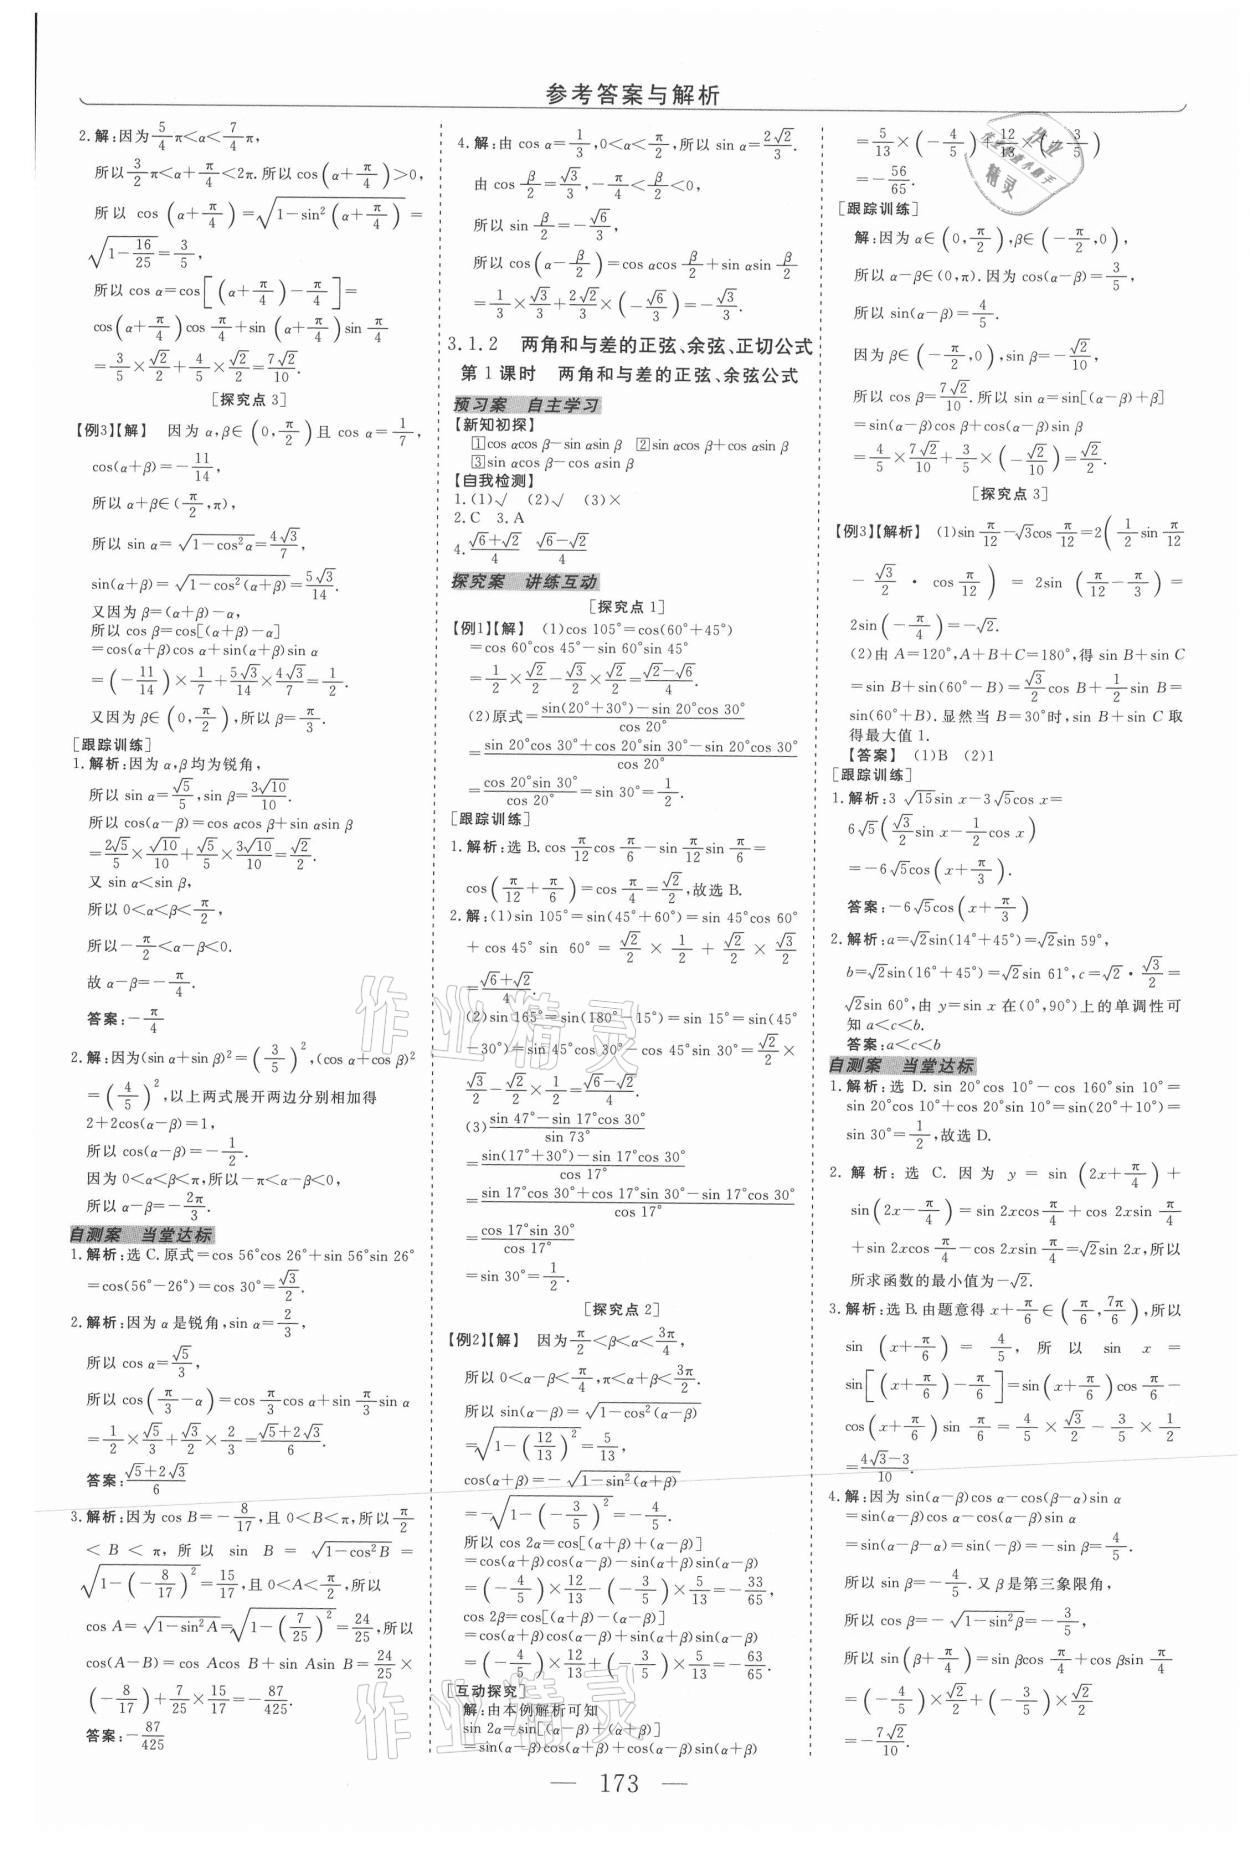 参考答案与解析
2.解:因为5/4π<α<7/4π,
所以3/2π<α+π/4<2π.所以cos(α+π/4)>0,
所以 cos(α+π/4)=√(1-sin²(α+π/4))=
√(1-16/25)=3/5,
所以cos α=cos[(α+π/4)-π/4]=
cos(α+π/4)cos π/4+sin(α+π/4)sin π/4
=3/5×√2/2+4/5×√2/2=7√2/10.
[探究点3]
【例3】【解】 因为α,β∈(0,π/2)且cos α=1/7,
cos(α+β)=-11/14,
所以α+β∈(π/2,π),
所以sin α=√(1-cos²α)=4√3/7,
sin(α+β)=√(1-cos²(α+β))=5√3/14.
又因为β=(α+β)-α,
所以cos β=cos[(α+β)-α]
=cos(α+β)cos α+sin(α+β)sin α
=(-11/14)×1/7+5√3/14×4√3/7=1/2.
又因为β∈(0,π/2),所以β=π/3.
[跟踪训练]
1.解析:因为α,β均为锐角,
所以sin α=√5/5,sin β=3√10/10.
所以cos(α-β)=cos αcos β+sin αsin β
=2√5/5×√10/10+√5/5×3√10/10=√2/2.
又sin α<sin β,
所以0<α<β<π/2,
所以-π/2<α-β<0.
故α-β=-π/4.
答案:-π/4
2.解:因为(sin α+sin β)²=(3/5)²,(cos α+cos β)²
=(4/5)²,以上两式展开两边分别相加得
2+2cos(α-β)=1,
所以cos(α-β)=-1/2.
因为0<α<β<π,所以-π<α-β<0,
所以α-β=-2π/3.
自测案 当堂达标
1.解析:选C.原式=cos 56°cos 26°+sin 56°sin 26°
=cos(56°-26°)=cos 30°=√3/2.
2.解析:因为α是锐角,sin α=2/3,
所以cos α=√5/3,
所以cos(π/3-α)=cos π/3cos α+sin π/3sin α
=1/2×√5/3+√3/2×2/3=(√5+2√3)/6.
答案:(√5+2√3)/6
3.解析:因为cos B=-8/17,且0<B<π,所以π/2
<B<π,所以 sin B=√(1-cos²B)=
√(1-(-8/17)²)=15/17,且0<A<π/2,所以
cos A=√(1-sin²A)=√(1-(7/25)²)=24/25,所以
cos(A-B)=cos Acos B+sin Asin B=24/25×
(-8/17)+7/25×15/17=-87/425.
答案:-87/425
4.解:由cos α=1/3,0<α<π/2,所以sin α=2√2/3.
由cos β/2=√3/3,-π/4<β/2<0,
所以sin β/2=-√6/3,
所以cos(α-β/2)=cos αcos β/2+sin αsin β/2
=1/3×√3/3+2√2/3×(-√6/3)=-√3/3.
3.1.2 两角和与差的正弦、余弦、正切公式
第1课时 两角和与差的正弦、余弦公式
预习案 自主学习
【新知初探】
①cos αcos β-sin αsin β ②sin αcos β+cos αsin β
③sin αcos β-cos αsin β
【自我检测】
1.(1)√ (2)√ (3)×
2.C 3.A
4.(√6+√2)/4 (√6-√2)/4
探究案 讲练互动
[探究点1]
【例1】【解】 (1)cos 105°=cos(60°+45°)
=cos 60°cos 45°-sin 60°sin 45°
=1/2×√2/2-√3/2×√2/2=(√2-√6)/4.
(2)原式=(sin(20°+30°)-sin 20°cos 30°)/cos 20°
=(sin 20°cos 30°+cos 20°sin 30°-sin 20°cos 30°)/cos 20°
=cos 20°sin 30°/cos 20°=sin 30°=1/2.
[跟踪训练]
1.解析:选B.cos π/12cos π/6-sin π/12sin π/6=
cos(π/12+π/6)=cos π/4=√2/2,故选B.
2.解:(1)sin 105°=sin(45°+60°)=sin 45°cos 60°
+cos 45° sin 60°=√2/2×1/2+√2/2×√3/2
=(√6+√2)/4.
(2)sin 165°=sin(180°-15°)=sin 15°=sin(45°
-30°)=sin 45°cos 30°-cos 45°sin 30°=√2/2×
√3/2-√2/2×1/2=(√6-√2)/4.
(3)(sin 47°-sin 17°cos 30°)/sin 73°
=(sin(17°+30°)-sin 17°cos 30°)/cos 17°
=(sin 17°cos 30°+cos 17°sin 30°-sin 17°cos 30°)/cos 17°
=cos 17°sin 30°/cos 17°
=sin 30°=1/2.
[探究点2]
【例2】【解】 因为π/2<β<α<3π/4,
所以0<α-β<π/4,π<α+β<3π/2.
所以sin(α-β)=√(1-cos²(α-β))
=√(1-(12/13)²)=5/13,
cos(α+β)=-√(1-sin²(α+β))
=-√(1-(-3/5)²)=-4/5.
所以cos 2α=cos[(α+β)+(α-β)]
=cos(α+β)cos(α-β)-sin(α+β)sin(α-β)
=(-4/5)×12/13-(-3/5)×5/13=-33/65,
cos 2β=cos[(α+β)-(α-β)]
=cos(α+β)cos(α-β)+sin(α+β)sin(α-β)
=(-4/5)×12/13+(-3/5)×5/13=-63/65.
[互动探究]
解:由本例解析可知
sin 2α=sin[(α-β)+(α+β)]
=sin(α-β)cos(α+β)+cos(α-β)sin(α+β)
=5/13×(-4/5)+12/13×(-3/5)
=-56/65.
[跟踪训练]
解:因为α∈(0,π/2),β∈(-π/2,0),
所以α-β∈(0,π).因为cos(α-β)=3/5,
所以sin(α-β)=4/5.
因为β∈(-π/2,0),sin β=-√2/10,
所以cos β=7√2/10.所以sin α=sin[(α-β)+β]
=sin(α-β)cos β+cos(α-β)sin β
=4/5×7√2/10+3/5×(-√2/10)=√2/2.
[探究点3]
【例3】【解析】 (1)sin π/12-√3cos π/12=2(1/2sin π/12
-√3/2·cos π/12)=2sin(π/12-π/3)=
2sin(-π/4)=-√2.
(2)由A=120°,A+B+C=180°,得sin B+sin C
=sin B+sin(60°-B)=√3/2cos B+1/2sin B=
sin(60°+B).显然当B=30°时,sin B+sin C取
得最大值1.
【答案】 (1)B (2)1
[跟踪训练]
1.解析:3√15sin x-3√5cos x=
6√5(√3/2sin x-1/2cos x)
=-6√5cos(x+π/3).
答案:-6√5cos(x+π/3)
2.解析:a=√2sin(14°+45°)=√2sin 59°,
b=√2sin(16°+45°)=√2sin 61°,c=√2·√3/2=
√2sin 60°,由y=sin x在(0°,90°)上的单调性可
知a<c<b.
答案:a<c<b
自测案 当堂达标
1.解析:选D.sin 20°cos 10°-cos 160°sin 10°=
sin 20°cos 10°+cos 20°sin 10°=sin(20°+10°)=
sin 30°=1/2,故选D.
2.解析:选C.因为y=sin(2x+π/4)+
sin(2x-π/4)=sin 2xcos π/4+cos 2xsin π/4
+sin 2xcos π/4-cos 2xsin π/4=√2sin 2x,所以
所求函数的最小值为-√2.
3.解析:选B.由题意得x+π/6∈(π/6,7π/6),所以
sin(x+π/6)=4/5,所以 sin x=
sin[(x+π/6)-π/6]=sin(x+π/6)cos π/6-
cos(x+π/6)sin π/6=4/5×√3/2-3/5×1/2
=(4√3-3)/10.
4.解:因为sin(α-β)cos α-cos(β-α)sin α
=sin(α-β)cos α-cos(α-β)sin α
=sin(α-β-α)=sin(-β)=-sin β=4/5.
所以sin β=-4/5.又β是第三象限角,
所以cos β=-√(1-sin²β)=-3/5,
所以sin(β+π/4)=sin βcos π/4+cos βsin π/4
=(-4/5)×√2/2+(-3/5)×√2/2
=-7√2/10.
作业精灵
作业精灵
— 173 —